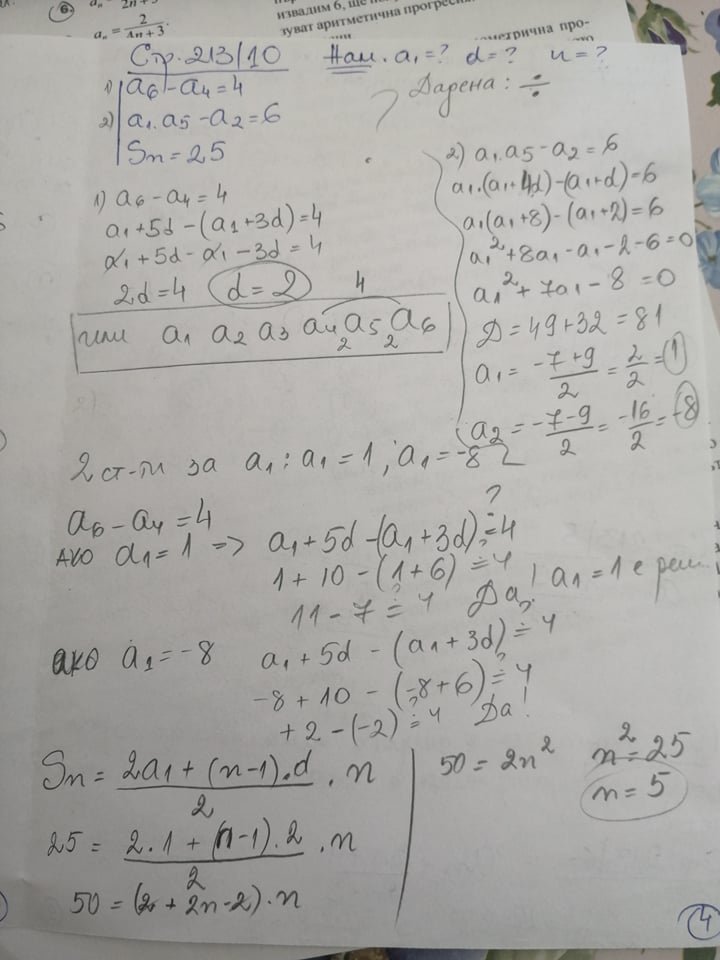 6.
aₙ = 2/(4n+3).
извадим 6, ще
зуват аритметична прогресия
Стр. 213/10 Нам. a₁=? d=? n=?
1) a₆ - a₄ = 4
Дарена: ÷
2) a₁.a₅ - a₂ = 6
Sn = 25
1) a₆ - a₄ = 4
a₁ + 5d - (a₁ + 3d) = 4
a₁ + 5d - a₁ - 3d = 4
2d = 4 d = 2
4
или a₁ a₂ a₃ a₄ a₅ a₆
2 2
2) a₁.a₅ - a₂ = 6
a₁.(a₁+4d) - (a₁+d) = 6
a₁(a₁+8) - (a₁+2) = 6
a₁² + 8a₁ - a₁ - 2 - 6 = 0
a₁² + 7a₁ - 8 = 0
Д = 49 + 32 = 81
a₁ = (-7+9)/2 = 2/2 = 1
a₂ = (-7-9)/2 = -16/2 = -8
2 ст-ти за a₁: a₁ = 1; a₁ = -8
a₆ - a₄ = 4
ако a₁ = 1 => a₁ + 5d - (a₁ + 3d) ≟ 4
1 + 10 - (1 + 6) ≟ 4
11 - 7 ≟ 4 Да! a₁ = 1 е реш.
ако a₁ = -8 a₁ + 5d - (a₁ + 3d) ≟ 4
-8 + 10 - (-8 + 6) ≟ 4
+2 - (-2) ≟ 4 Да!
Sn = (2a₁ + (n-1).d)/2 . n
25 = (2.1 + (n-1).2)/2 . n
50 = (2 + 2n - 2).n
50 = 2n² n² = 25
n = 5
4